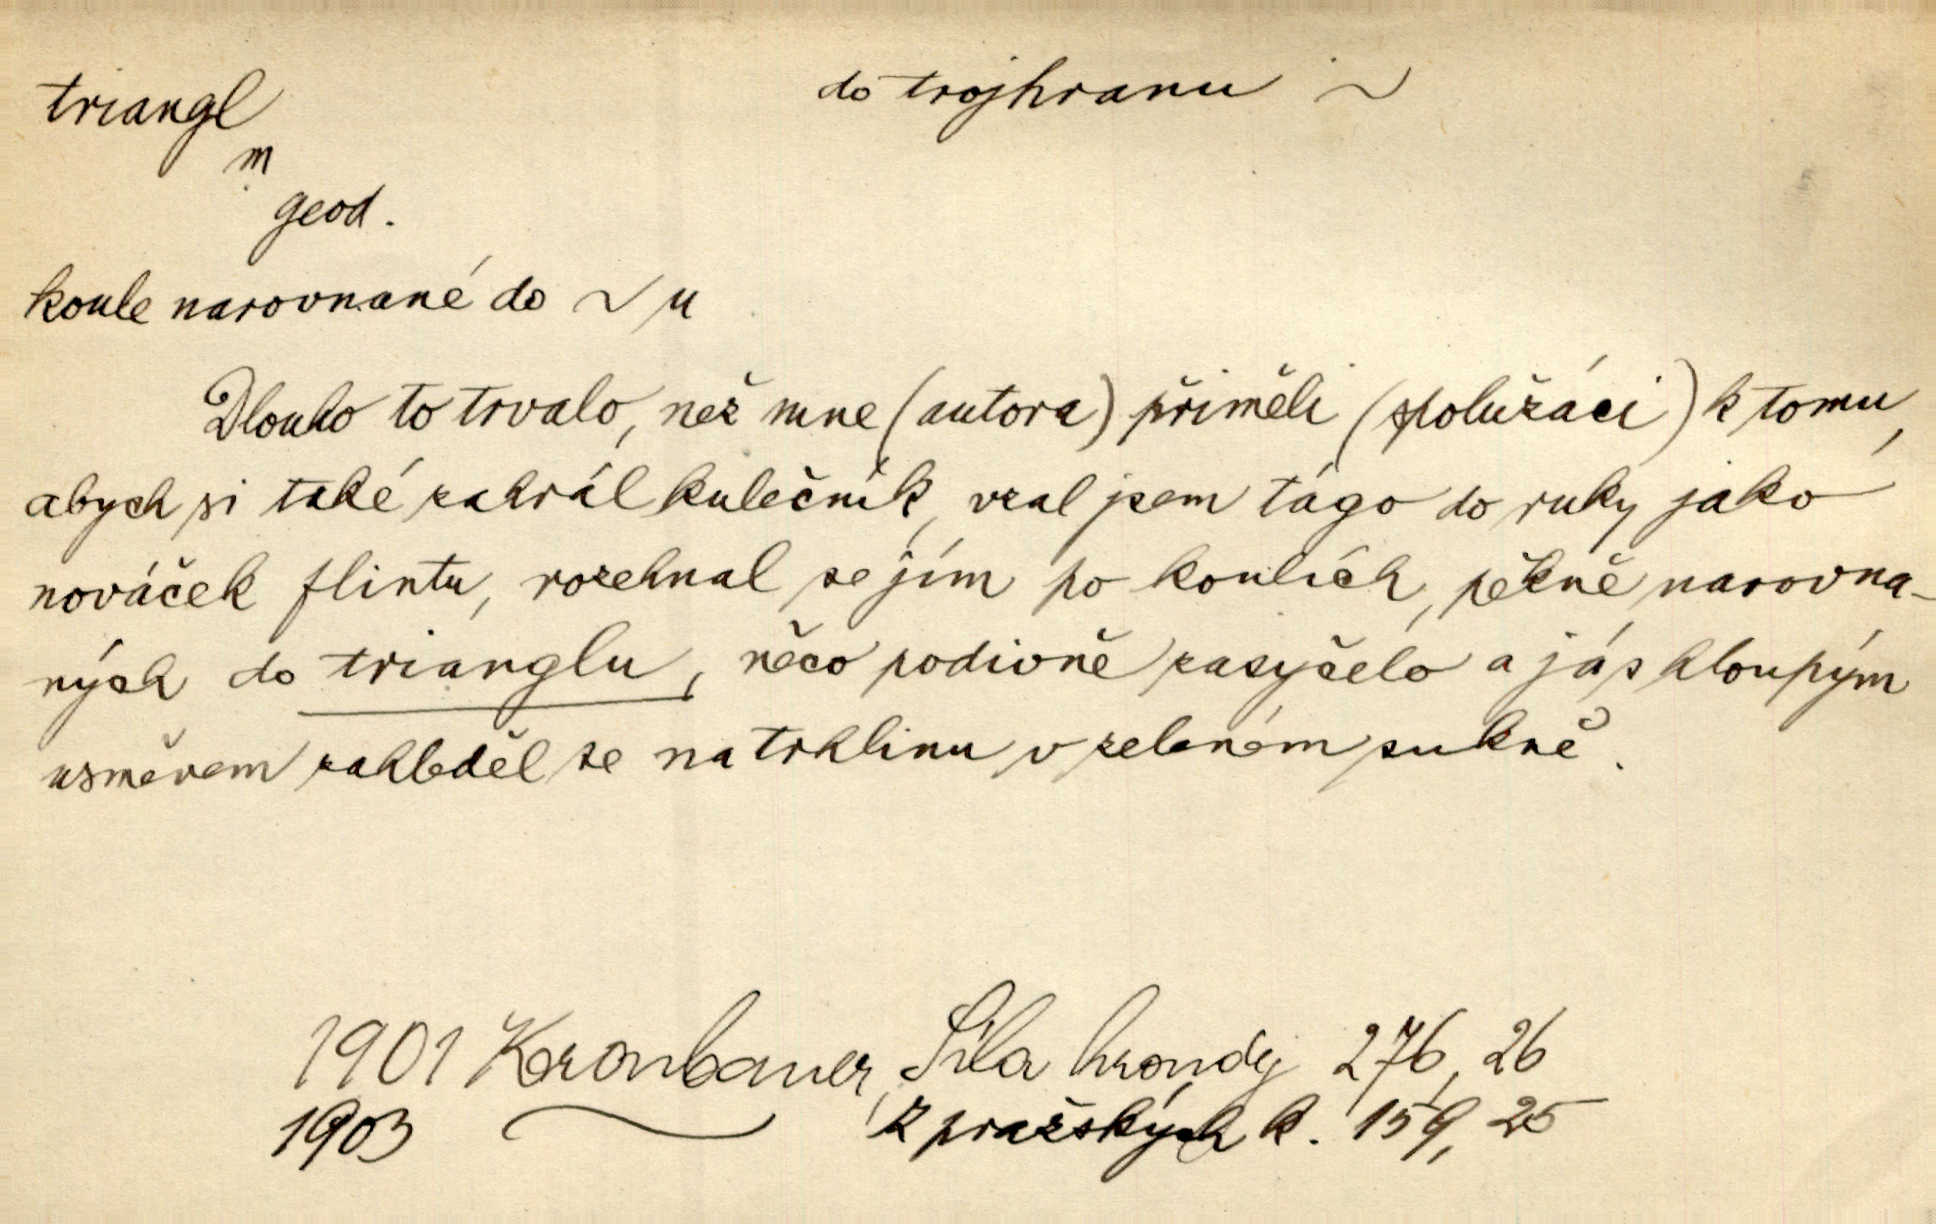 triangl
do trojhranu ~
m
geod.
koule narovnané do ~ u
Dlouho to trvalo, než mne (autora) přiměli (spolužáci) k tomu,
abych si také zahrál kulečník, vzal jsem tágo do ruky jako
nováček flintu, rozehnal se jím po koulích, pěkně narovna-
ných do trianglu, něco podivně zasyčelo a já s hloupým
usměvem zahleděl se na trhlinu v zeleném sukně.
1901 Kronbauer, Síla hroudy 276, 26
1903 ~ Z pražských k. 159, 25